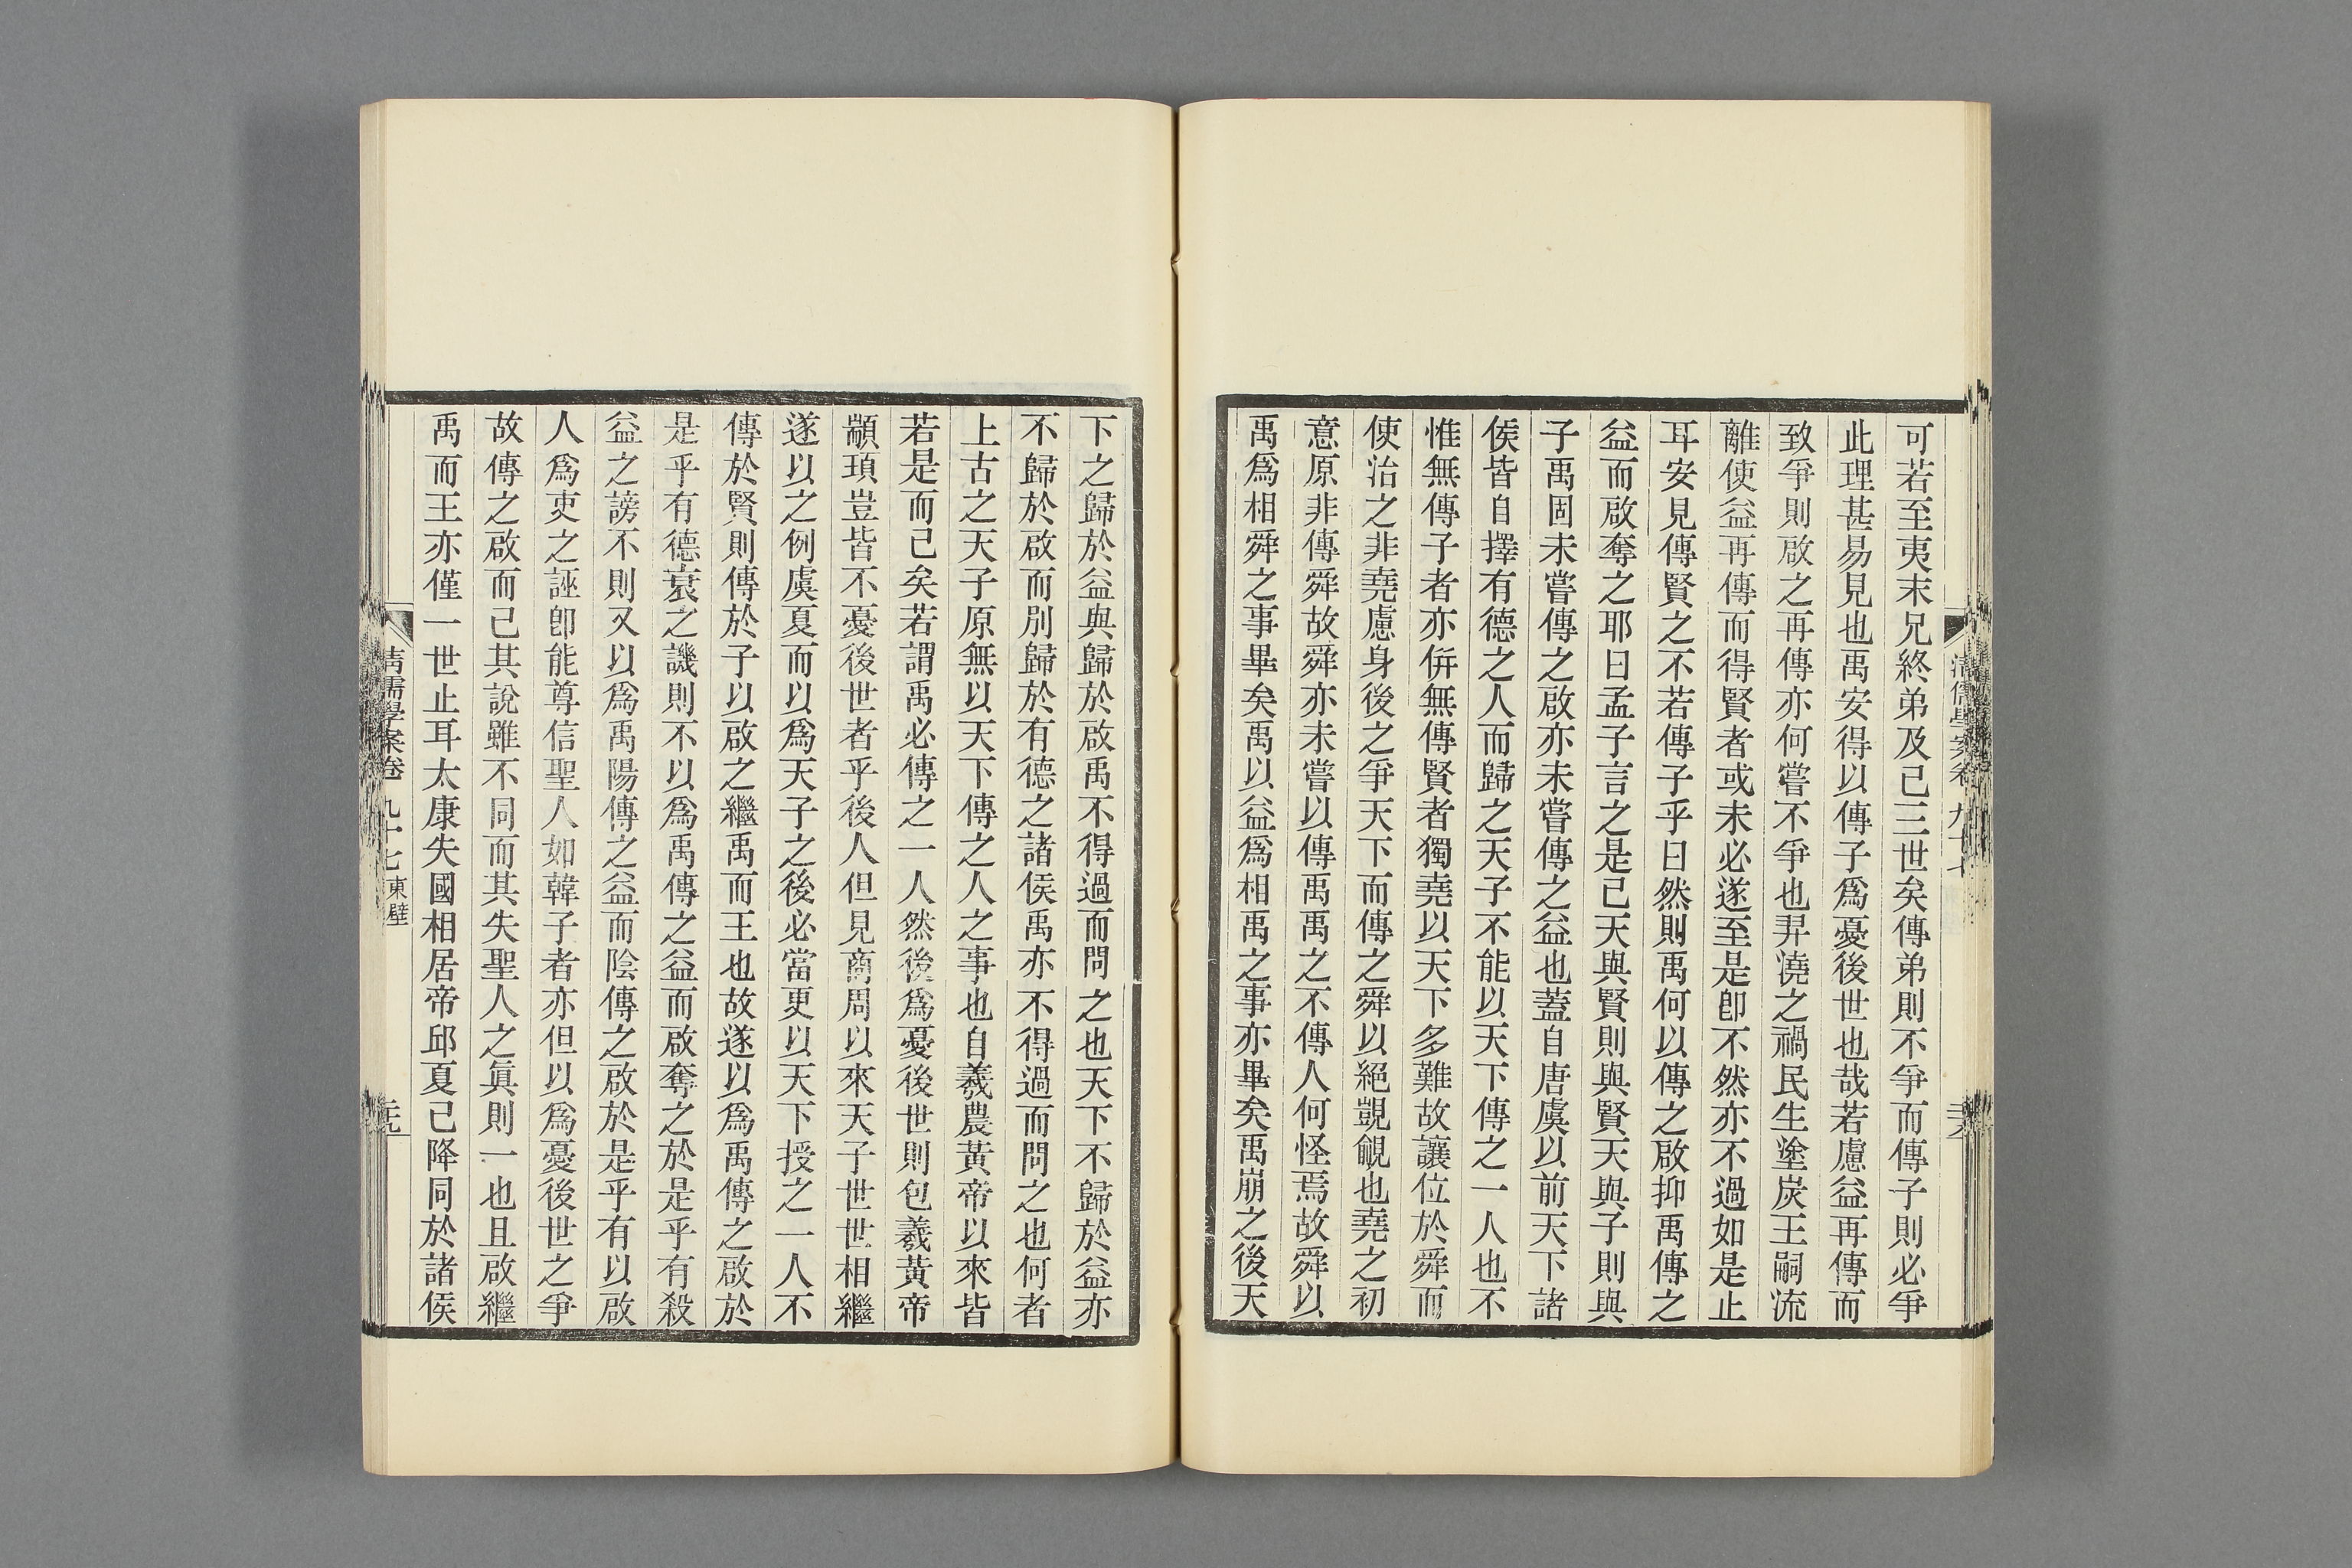 可若至夷末兄終弟及己三世矣傳弟則不爭而傳子則必爭
此理甚易見也禹安得以傳子爲憂後世也哉若慮益再傳而
致爭則啟之再傳亦何嘗不爭也羿澆之禍民生塗炭王嗣流
離使益再傳而得賢者或未必遂至是卽不然亦不過如是止
耳安見傳賢之不若傳子乎曰然則禹何以傳之啟抑禹傳之
益而啟奪之耶曰孟子言之是已天與賢則與賢天與子則與
子禹固未嘗傳之啟亦未嘗傳之益也蓋自唐虞以前天下諸
侯皆自擇有德之人而歸之天子不能以天下傳之一人也不
惟無傳子者亦倂無傳賢者獨堯以天下多難故讓位於舜而
使治之非堯慮身後之爭天下而傳之舜以絕覬覦也堯之初
意原非傳舜故舜亦未嘗以傳禹禹之不傳人何怪焉故舜以
禹爲相舜之事畢矣禹以益爲相禹之事亦畢矣禹崩之後天
下之歸於益與歸於啟禹不得過而問之也天下不歸於益亦
不歸於啟而別歸於有德之諸侯禹亦不得過而問之也何者
上古之天子原無以天下傳之人之事也自羲農黃帝以來皆
若是而已矣若謂禹必傳之一人然後爲憂後世則包羲黃帝
顓頊豈皆不憂後世者乎後人但見商周以來天子世世相繼
遂以之例虞夏而以爲天子之後必當更以天下授之一人不
傳於賢則傳於子以啟之繼禹而王也故遂以爲禹傳之啟於
是乎有德衰之譏則不以爲禹傳之益而啟奪之於是乎有殺
益之謗不則又以爲禹陽傳之益而陰傳之啟於是乎有以啟
人爲吏之誣卽能尊信聖人如韓子者亦但以爲憂後世之爭
故傳之啟而己其說雖不同而其失聖人之眞則一也且啟繼
禹而王亦僅一世止耳太康失國相居帝邱夏已降同於諸侯
清儒學案卷九十七 東壁